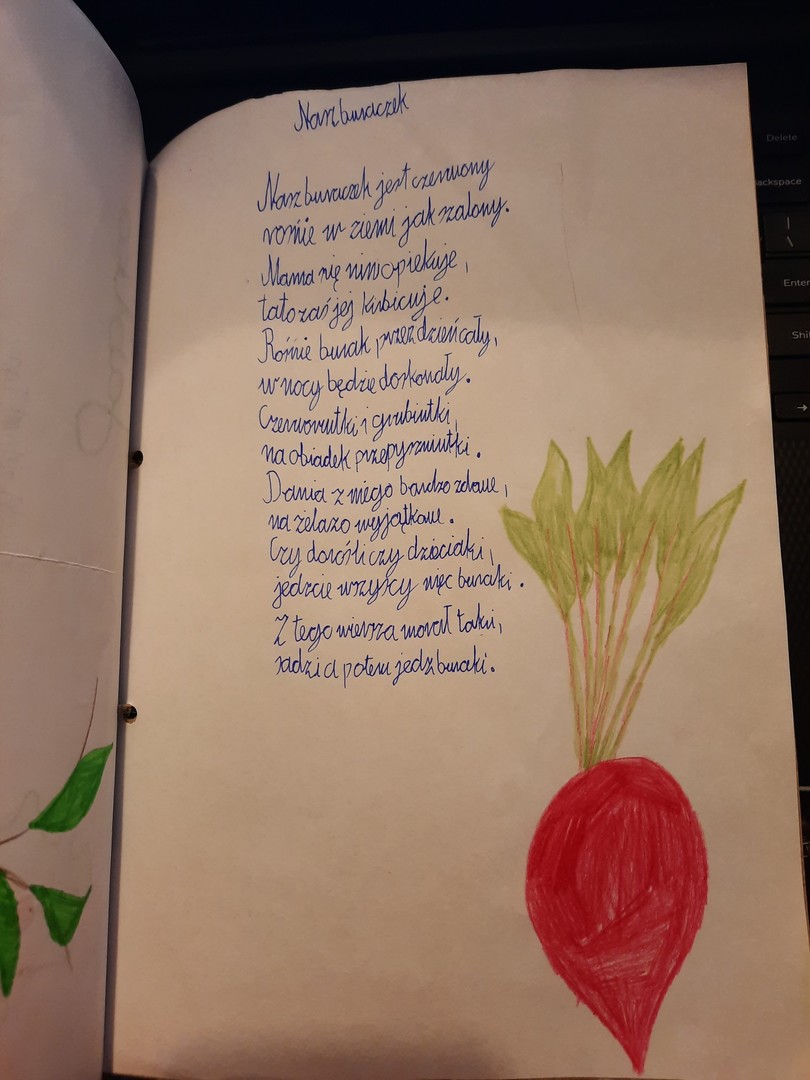 Nasz buraczek
Nasz buraczek jest czerwony
rośnie w ziemi jak szalony.
Mama się nim opiekuje,
tato zaś jej kibicuje.
Rośnie burak przez dzień cały,
w nocy będzie doskonały.
Czerwoniutki i grubiutki,
na obiadek przepyszniutki.
Dania z niego bardzo zdrowe,
na żelazo wyjątkowe.
Czy dorośli czy dzieciaki,
jedzcie wszyscy więc buraki.
Z tego wiersza morał taki,
sadzić a potem jedz buraki.
Delete
ackspace
|
\
Enter
Shi